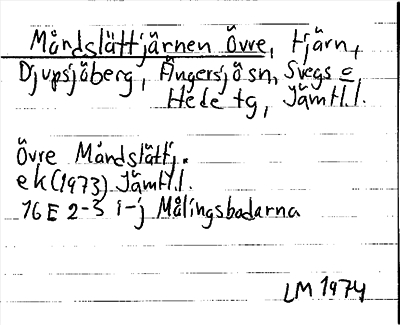 Måndslättjärnen Övre, tjärn,
Djupsjöberg, Ängersjö sn, Svegs
Hede tg, Jämtl. l.
Övre Måndslättj.
ek (1973) Jämtl. l.
16 E 2-3 i-j Målingsbodarna
LM 1974